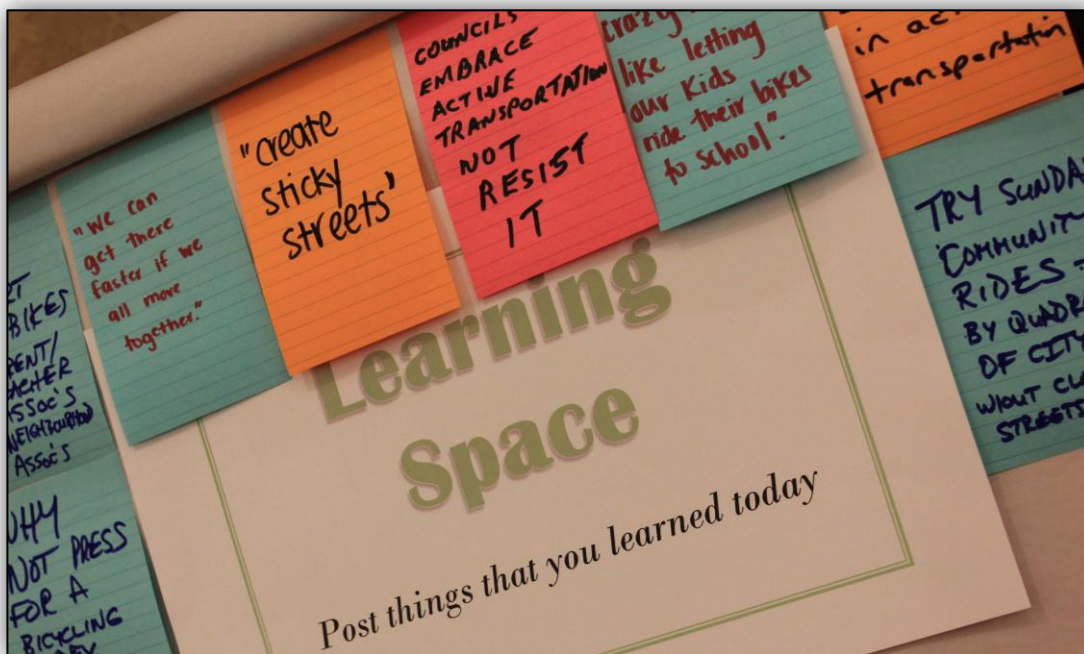 "We can
get there
faster if we
all move
together."
"create
sticky
streets"
COUNCILS
EMBRACE
ACTIVE
TRANSPORTATION
NOT
RESIST
IT
crazy
like letting
our kids
ride their bikes
to school".
in ac
transportation
TRY SUNDA
COMMUNITY
RIDES -
BY QUADR
OF CITY
W/OUT CL
STREETS
BIKES
RENT/
ACHER
ASSOC'S
NEIGHBOURHOOD
ASSOC'S
WHY
NOT PRESS
FOR A
BICYCLING
Learning
Space
Post things that you learned today